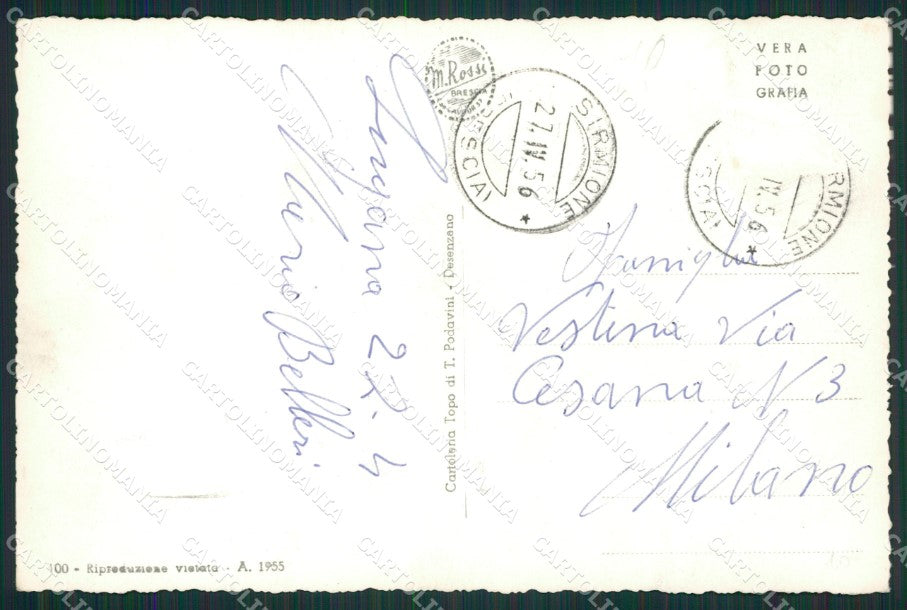 Lugana 27.4
Mario Belleri
M. Rossi
BRESCIA
SIRMIONE
(BRESCIA)
27.IV.56
VERA
FOTO
GRAFIA
RMIONE
SCIA)
IV.56
Famiglia
Vestina Via
Cesana N 3
Milano
Cartoleria Topo di T. Podavini - Desenzano
100 - Riproduzione vietata - A. 1955
CARTOLINOMANIA